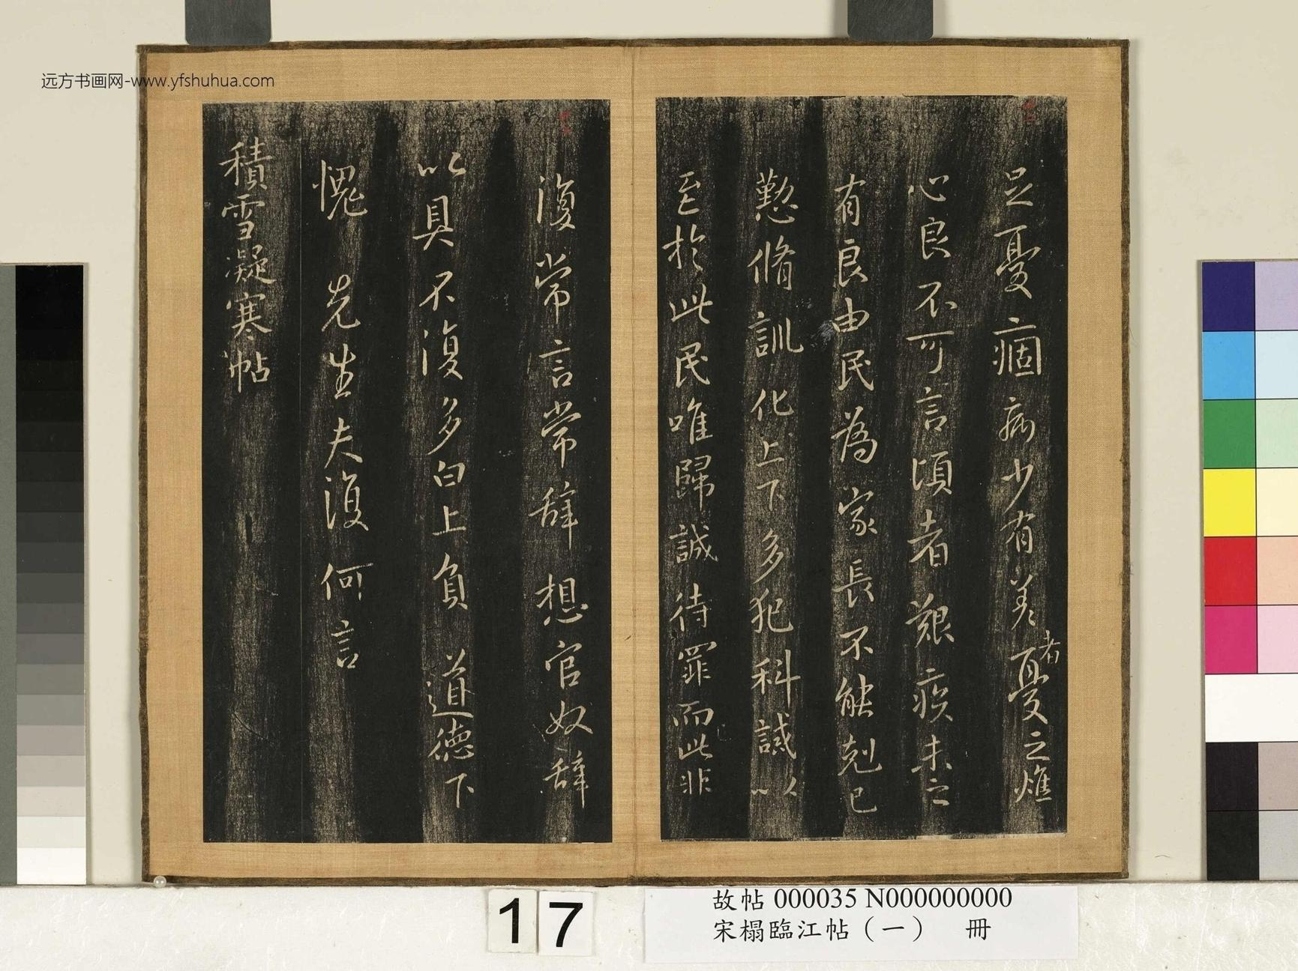 远方书画网-www.yfshuhua.com
足憂痼病少有差者憂之燋
心良不可言頃者艱疾未之
有良由民為家長不能剋己
懃脩訓化上下多犯科誡以
至於此民唯歸誠待罪而此非
復常言常辞想官奴辞
以具不復多白上負道德下
愧先生夫復何言
積雪凝寒帖
17
故帖 000035 N000000000
宋榻臨江帖（一） 冊